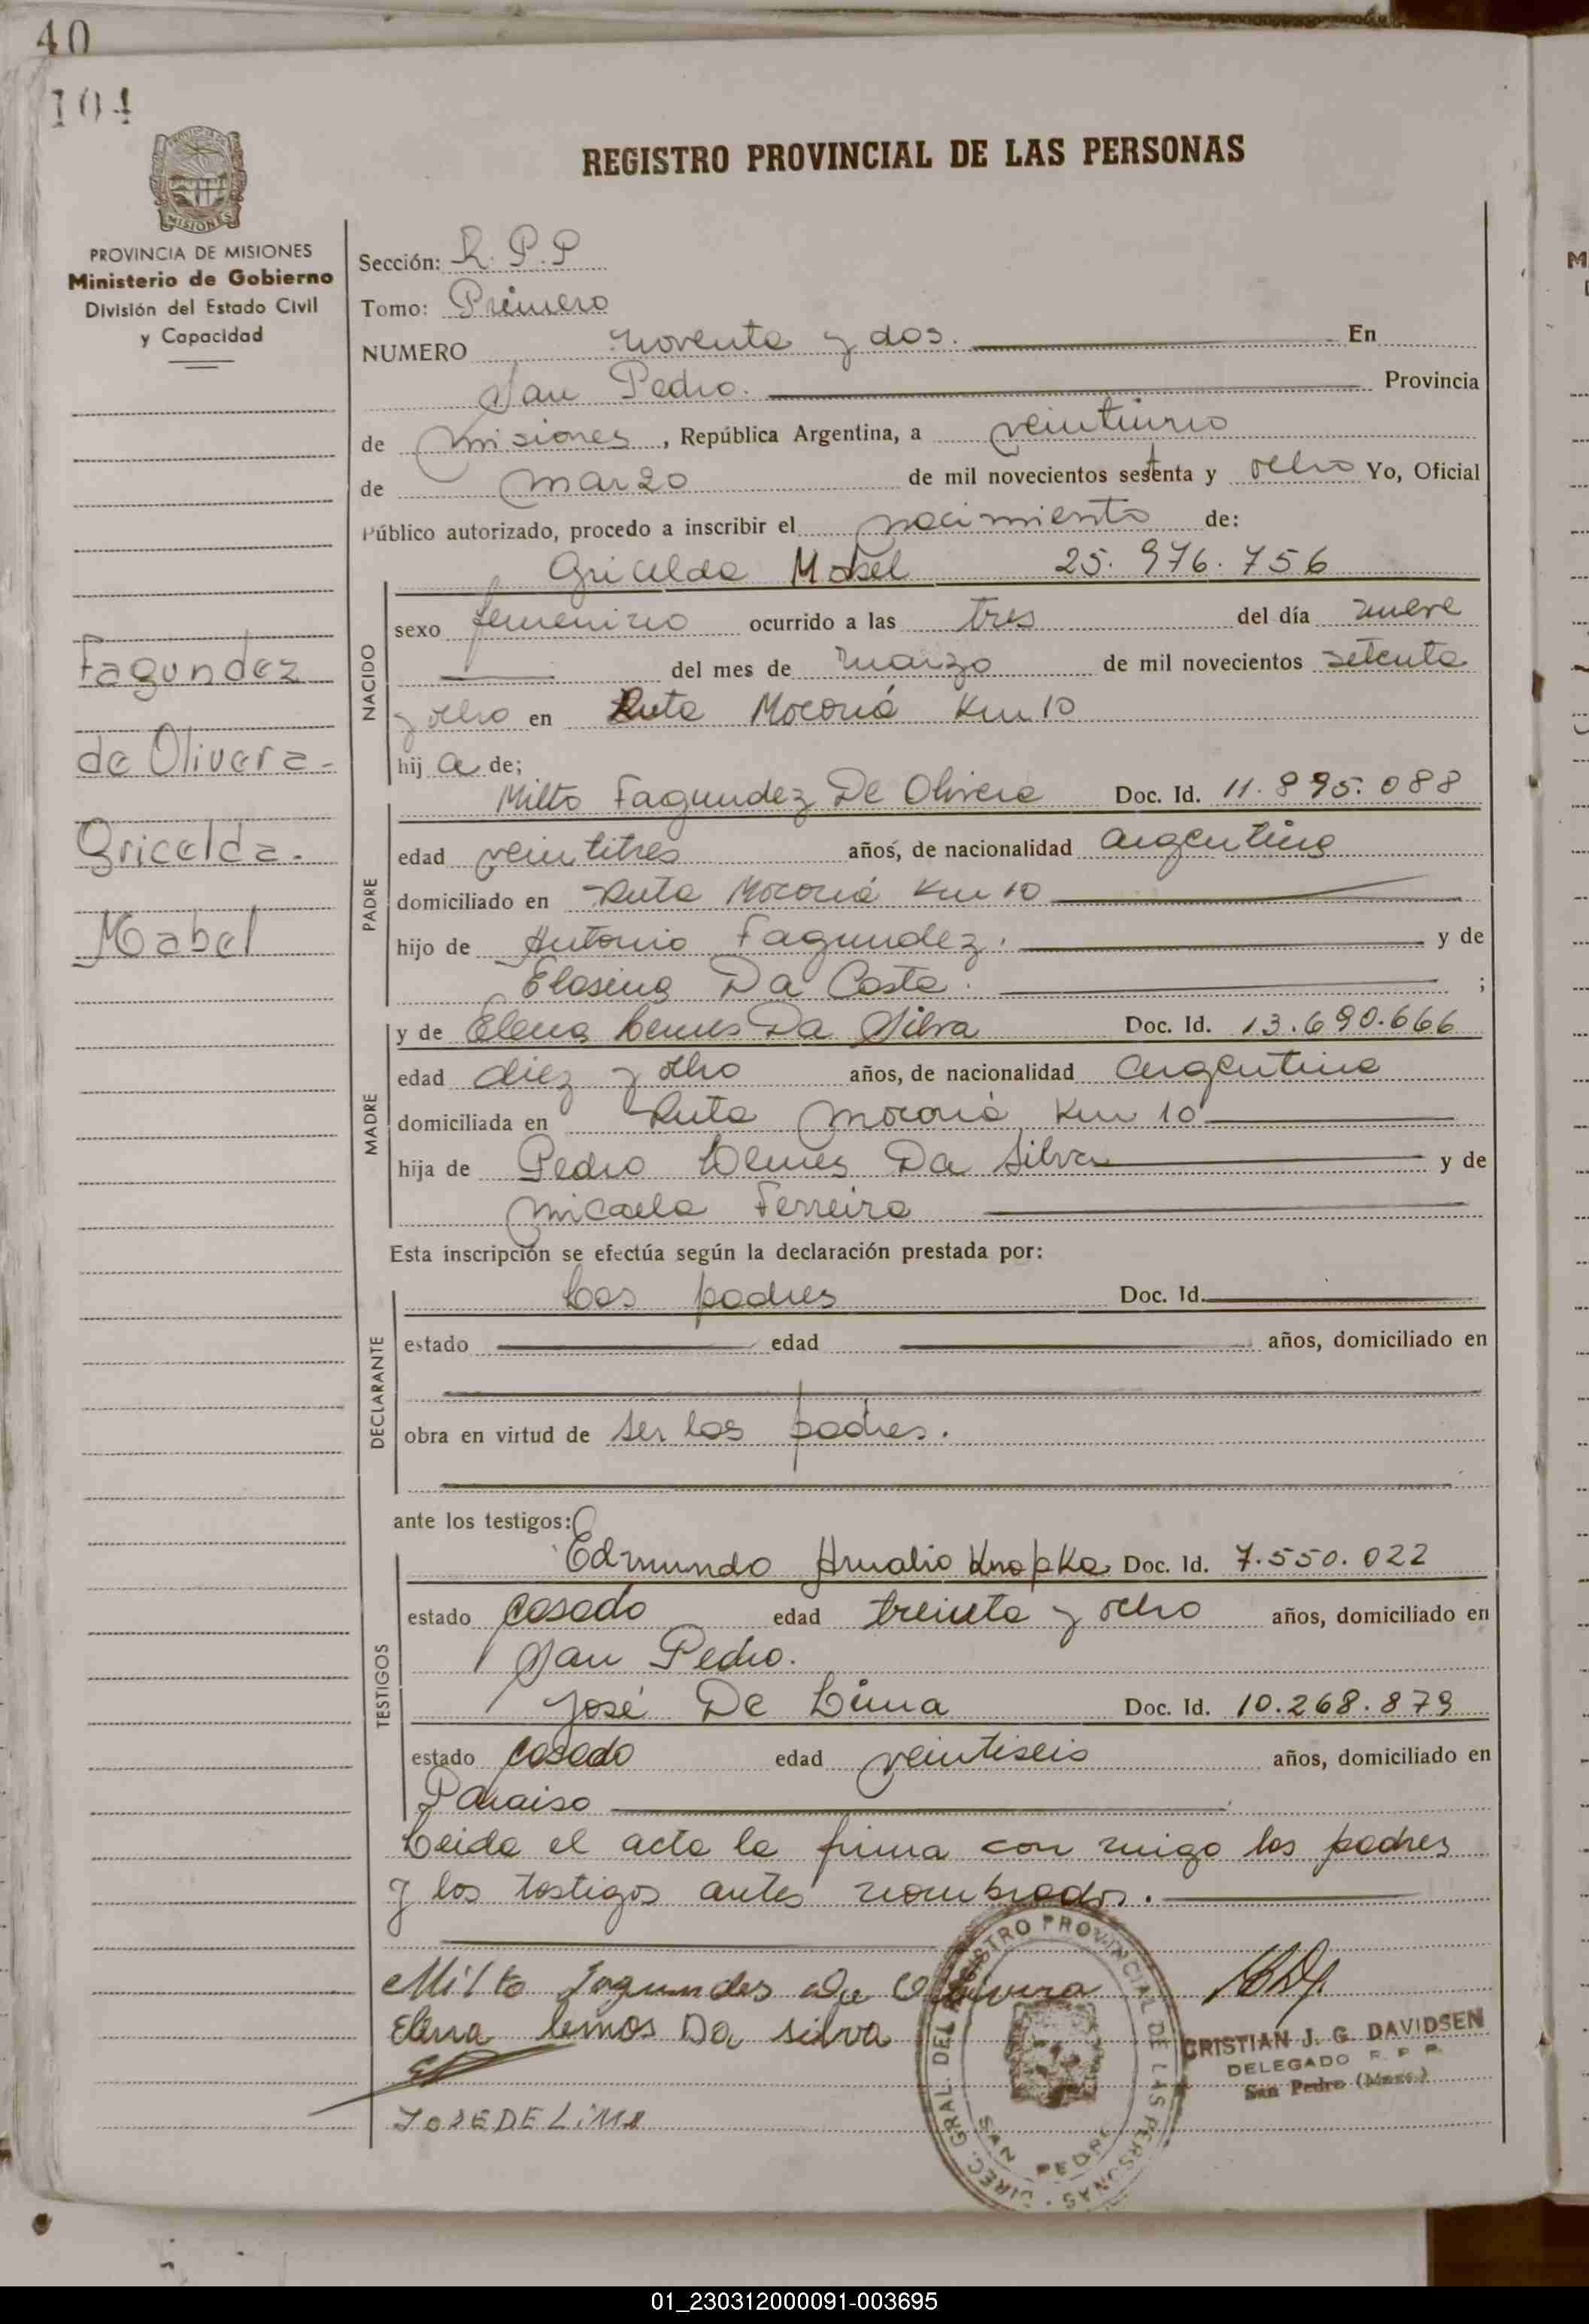 40
104
MISIONES
PROVINCIA DE MISIONES
Ministerio de Gobierno
División del Estado Civil
y Capacidad
Fagundez
de Olivera -
Gricelda.
Mabel
REGISTRO PROVINCIAL DE LAS PERSONAS
Sección: R. P. P
Tomo: Primero
NUMERO noventa y dos. En
San Pedro. Provincia
de Misiones, República Argentina, a veintiuno
de marzo de mil novecientos setenta y ocho Yo, Oficial
Público autorizado, procedo a inscribir el nacimiento de:
Gricelda Mabel 25.976.756
NACIDO
sexo femenino ocurrido a las tres del día nueve
del mes de marzo de mil novecientos setenta
y ocho en Ruta Moconá Km 10
hija de;
PADRE
Milto Fagundez De Olivera Doc. Id. 11.895.088
edad veintitres años, de nacionalidad argentina
domiciliado en Ruta Moconá Km 10
hijo de Antonio Fagundez. y de
Elosina Da Costa. ;
MADRE
y de Elena Lemes Da Silva Doc. Id. 13.690.666
edad diez y ocho años, de nacionalidad argentina
domiciliada en Ruta Moconá Km 10
hija de Pedro Lemes Da Silva y de
Micaela Ferreira
Esta inscripción se efectúa según la declaración prestada por:
DECLARANTE
Los padres Doc. Id.
estado edad años, domiciliado en
obra en virtud de ser los padres.
ante los testigos:
TESTIGOS
Edmundo Amalio Knopka Doc. Id. 7.550.022
estado casado edad treinta y ocho años, domiciliado en
San Pedro.
José De Lima Doc. Id. 10.268.879
estado casado edad veintiseis años, domiciliado en
Paraiso
Leida el acta la firma con migo los padres
y los testigos antes nombrados.
Milto Fagundes De Olivera
Elena lemos Da silva
JOSE DE LiMA
DIREC. GRAL. DEL REGISTRO PROVINCIAL DE LAS PERSONAS
SAN PEDRO
CRISTIAN J. G. DAVIDSEN
DELEGADO R. P. P.
San Pedro (Mnes.)
01_230312000091-003695